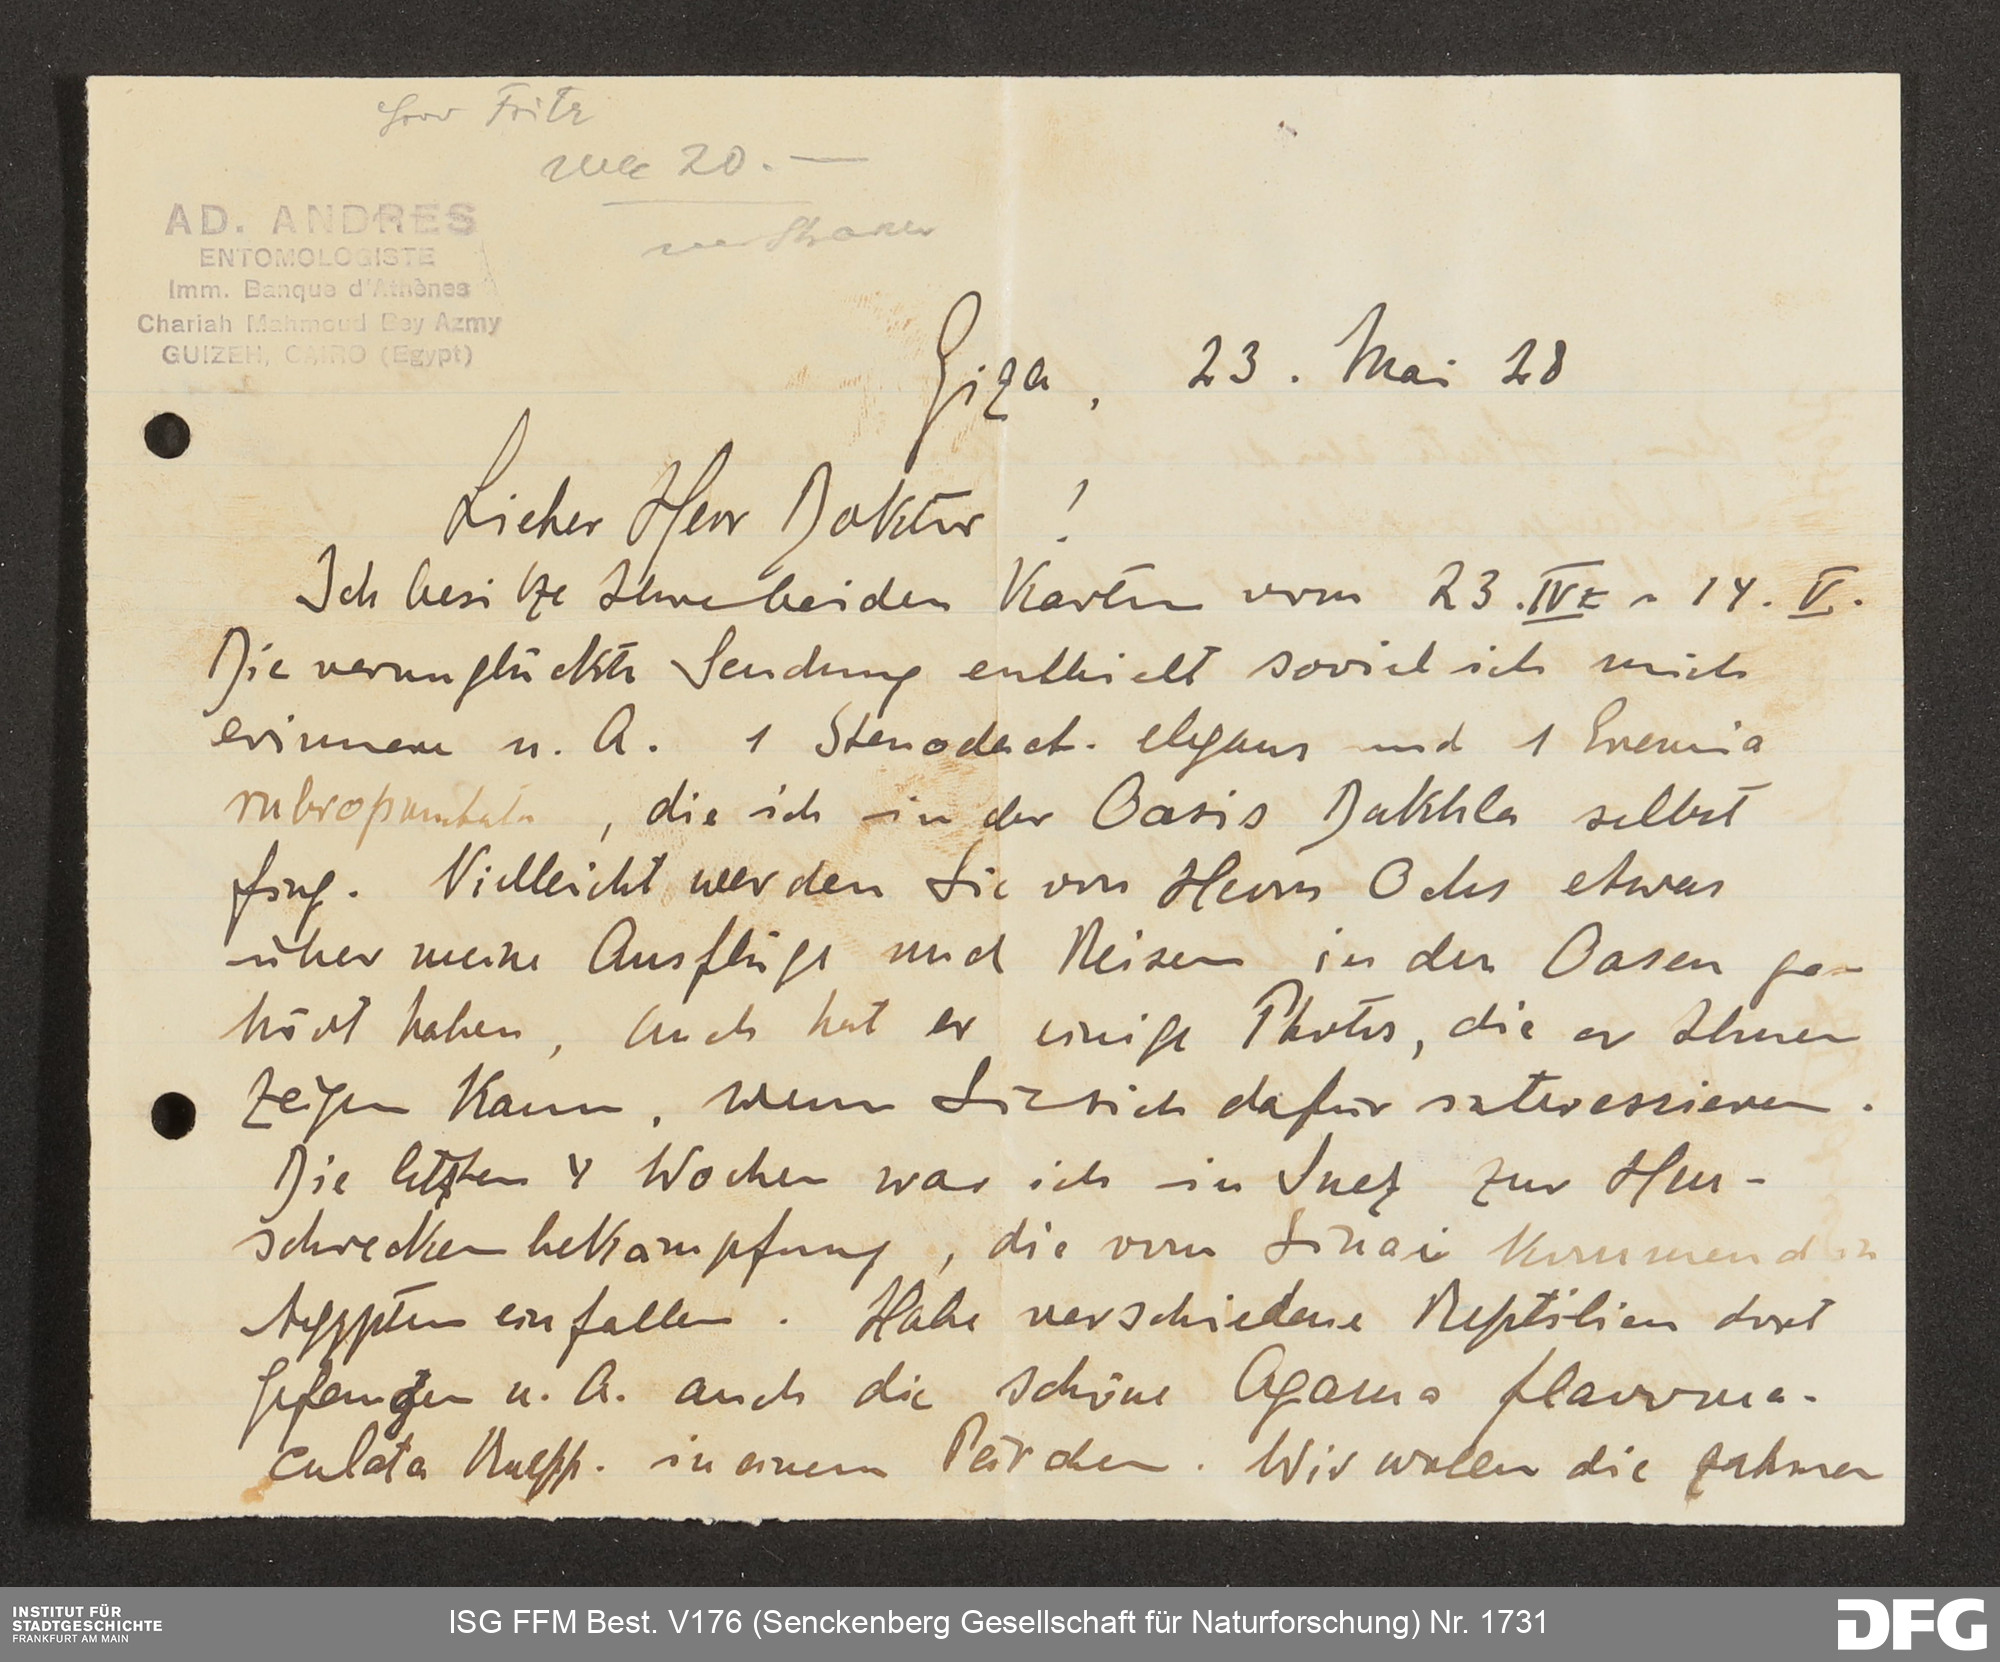 Herr Fritz
Mk 20.—
AD. ANDRES
ENTOMOLOGISTE
Imm. Banque d'Athènes
Chariah Mahmoud Bey Azmy
GUIZEH, CAIRO (Egypt)
Giza, 23. Mai 28
Lieber Herr Doktor!
Ich besitze Ihre beiden Karten vom 23. IV 14. V.
Die verunglückte Sendung enthielt soviel ich mich
erinnere u. A. 1 Stenodact. elegans und 1 Eremia
rubropunctata, die ich in der Oasis Dakhla selbst
fing. Vielleicht werden Sie von Herrn Ochs etwas
über meine Ausflüge und Reisen in den Oasen ge-
hört haben, auch hat er einige Photos, die er Ihnen
zeigen kann, wenn Sie sich dafür interessieren.
Die letzten 4 Wochen war ich in Suez zur Heu-
schreckenbekämpfung, die vom Sinai kommend in
Aegypten einfallen. Habe verschiedene Reptilien dort
gefangen u. A. auch die schöne Agama flavoma-
culata Ruepp. in einem Pärchen. Wir wollen die zahmen
INSTITUT FÜR
STADTGESCHICHTE
FRANKFURT AM MAIN
ISG FFM Best. V176 (Senckenberg Gesellschaft für Naturforschung) Nr. 1731
DFG